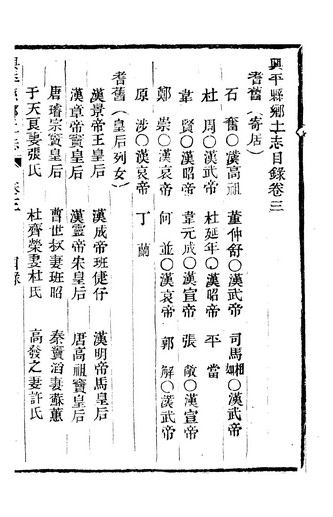 興平縣鄉土志目錄卷三
耆舊（寄居）
石　奮○漢高祖　董仲舒○漢武帝　司馬相如○漢武帝
杜　周○漢武帝　杜延年○漢昭帝　平　當
韋　賢○漢昭帝　韋元成○漢宣帝　張　敞○漢宣帝
鄭　崇○漢哀帝　何　並○漢哀帝　郭　解○漢武帝
原　涉○漢哀帝　丁　蘭
耆舊（皇后列女）
漢景帝王皇后　漢成帝班倢伃　漢明帝馬皇后
漢章帝竇皇后　漢靈帝宋皇后　唐高祖竇皇后
唐睿宗竇皇后　曹世叔妻班昭　秦竇滔妻蘇蕙
于天良妻張氏　杜齊榮妻杜氏　高發之妻許氏
卷三　目錄